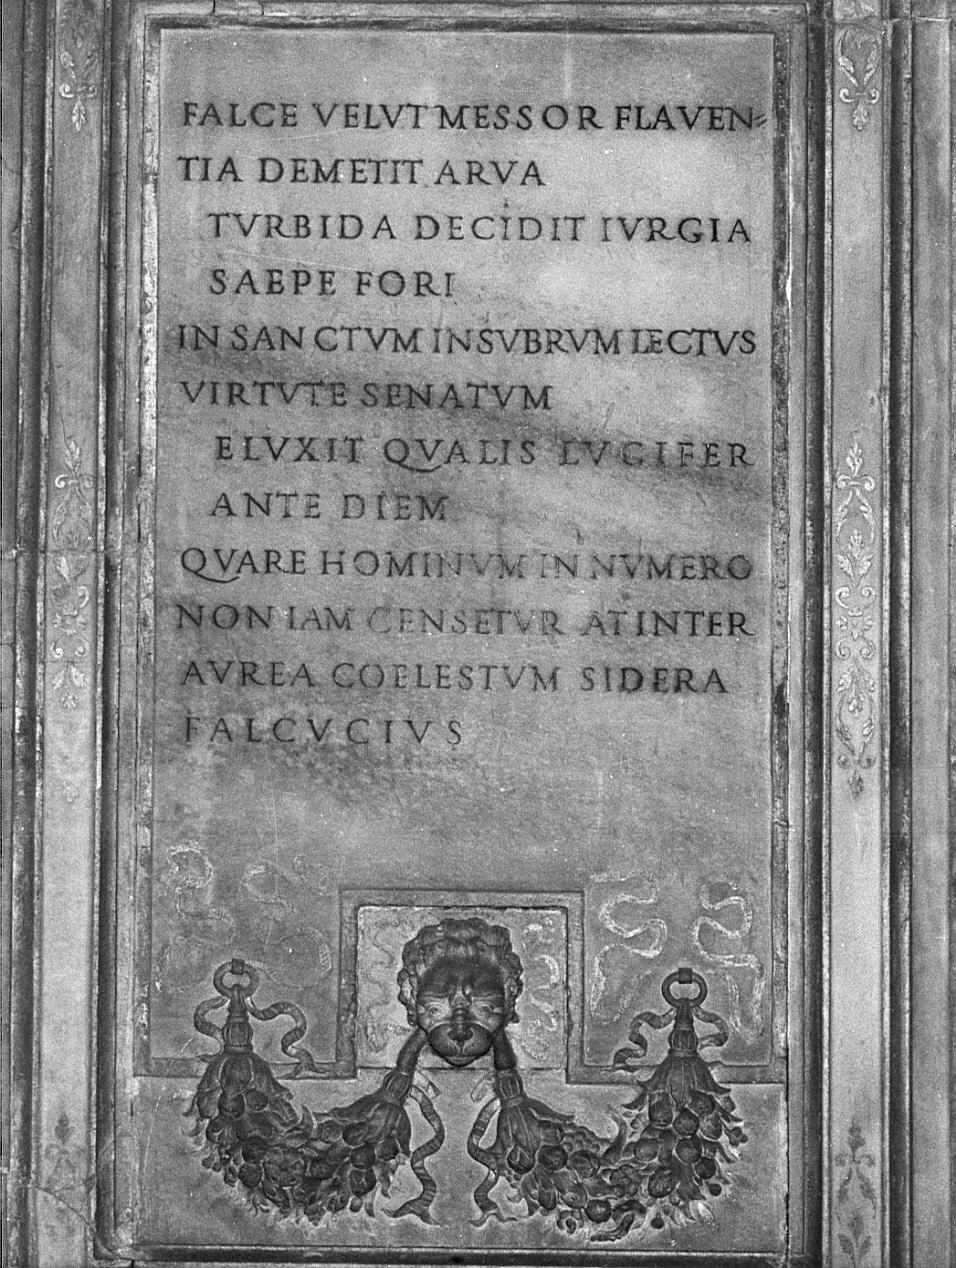 FALCE VELVT MESSOR FLAVEN-
TIA DEMETIT ARVA
TVRBIDA DECIDIT IVRGIA
SAEPE FORI
IN SANCTVM INSVBRVM LECTVS
VIRTVTE SENATVM
ELVXIT QVALIS LVCIFER
ANTE DIEM
QVARE HOMINVM IN NVMERO
NON IAM CENSETVR AT INTER
AVREA COELESTVM SIDERA
FALCVCIVS